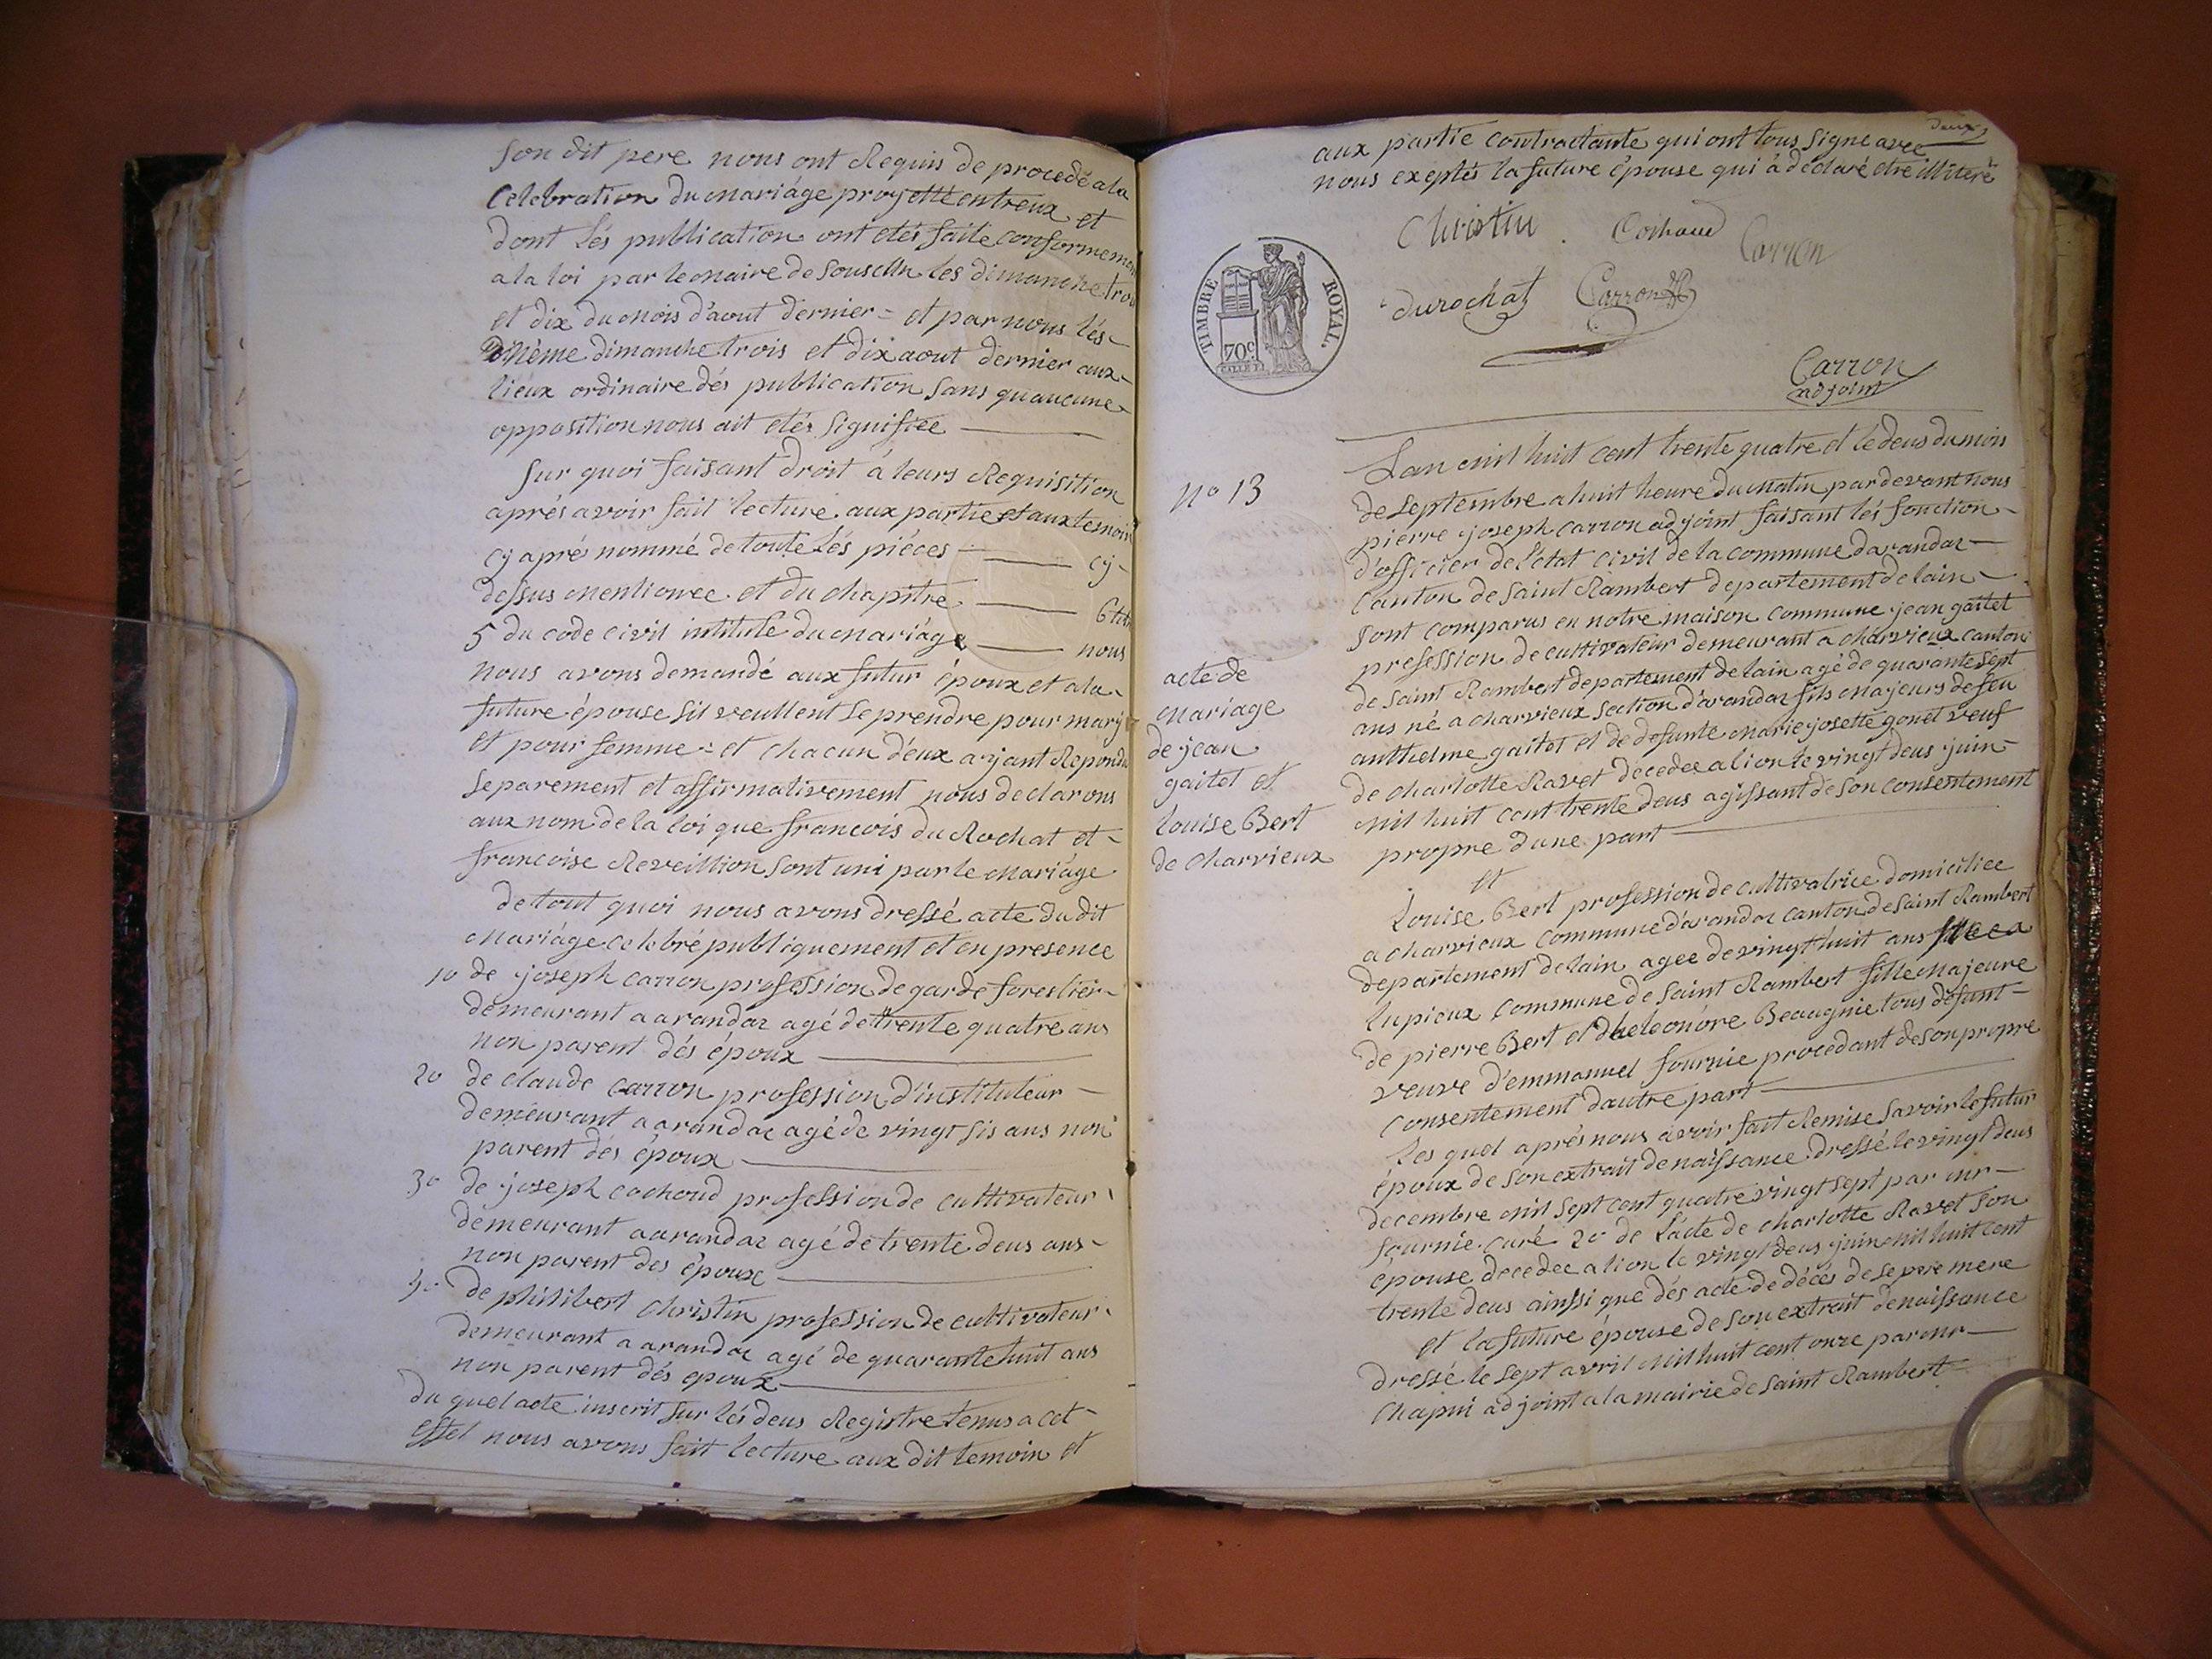 son dit pere nous ont Requis de procedé a la
Celebration du mariáge projetté entreux et
dont lés publication ont etés faite conformement
a la loi par le maire de souselin les dimanche trois
et dix du mois d'aout dernier = et par nous lés
Mème dimanche trois et dix aout dernier aux
lieux ordinaire dés publication sans quaucune
opposition nous ait etés signifiée
Sur quoi faisant droit á leurs Requisition
aprés avoir fait lecture aux partie et aux temoin
cy aprés nommé de toute lés piéces cy
dessus mentionee et du chapitre 6 titre
5 du code civil intitulé du mariáge nous
nous avons demandé aux futur époux et a la
future épouse sil veullent se prendre pour mary
et pour femme = et chacun d'eux ayant Repondu
separement et affirmativement nous declarons
aux nom de la loi que francois du Rochat et
francoise Reveillion sont uni par le mariáge
de tout quoi nous avons dressé acte du dit
mariáge celebré publiquement et en presence
1º de joseph carron profession de garde forestier
demeurant a arandaz agé de trente quatre ans
non parent dés époux
2º de claude carron profession d'instituteur
demeurant a arandaz agé de vingt sis ans non
parent dés époux
3º de joseph cochoud profession de cultivateur
demeurant a arandaz agé de trente deus ans
non parent des époux
4º de philibert Christin profession de cultivateur
demeurant a arandaz agé de quarante huit ans
non parent dés epoux
du quel acte inscrit sur lés deus Registre tenus a cet
effet nous avons fait lecture aux dit temoin et
deux
aux partie contractante qui ont tous signe avec
nous exeptés la future épouse qui à déclaré etre illiteré
Christin Carron
durochat Carron
TIMBRE ROYAL
70c
Carron
adjoint
Nº 13
acte de
mariage
de jean
gaitet et
Louise Bert
de charvieux
Lan mil huit cent trente quatre et le deus du mois
de septembre a huit heure du matin pardevant nous
pierre joseph carron adjoint faisant lés fonction
d'officier de l'état civil de la commune darandaz
canton de saint Rambert departement de lain
sont comparus en notre maison commune jean gaitet
profession de cultivateur demeurant a charvieux canton
de saint Rambert departement de lain agé de quarante sept
ans né a charvieux section d'arandaz fils majeurs de feu
anthelme gaitet et de defunte marie josette gonet veuf
de charlotte Ravet decedee a lion le vingt deus juin
mil huit cent trente deus agissant de son consentement
propre dune part
et
Louise Bert profession de cultivatrice domiciliee
a charvieux commune d'arandaz canton de saint Rambert
departement de lain agee de vingt huit ans née a
lupieux commune de saint Rambert fille majeure
de pierre Bert et d'heleonore Beaugnie tous defunt
veuve d'emmanuel fournie procedant de son propre
consentement dautre part
Les quel aprés nous avoir fait Remise savoir le futur
époux de son extrait de naissance dressé le vingt deus
decembre mil sept cent quatre vingt sept par mr
fournie curé 2º de l'acte de charlotte Ravet son
épouse decedee a lion le vingt deus juin mil huit cent
trente deus ainssi que dés acte de décés de se pere mere
et la future épouse de son extrait de naissance
dressé le sept avril mil huit cent onze par mr
Chapui adjoint a la mairie de saint Rambert